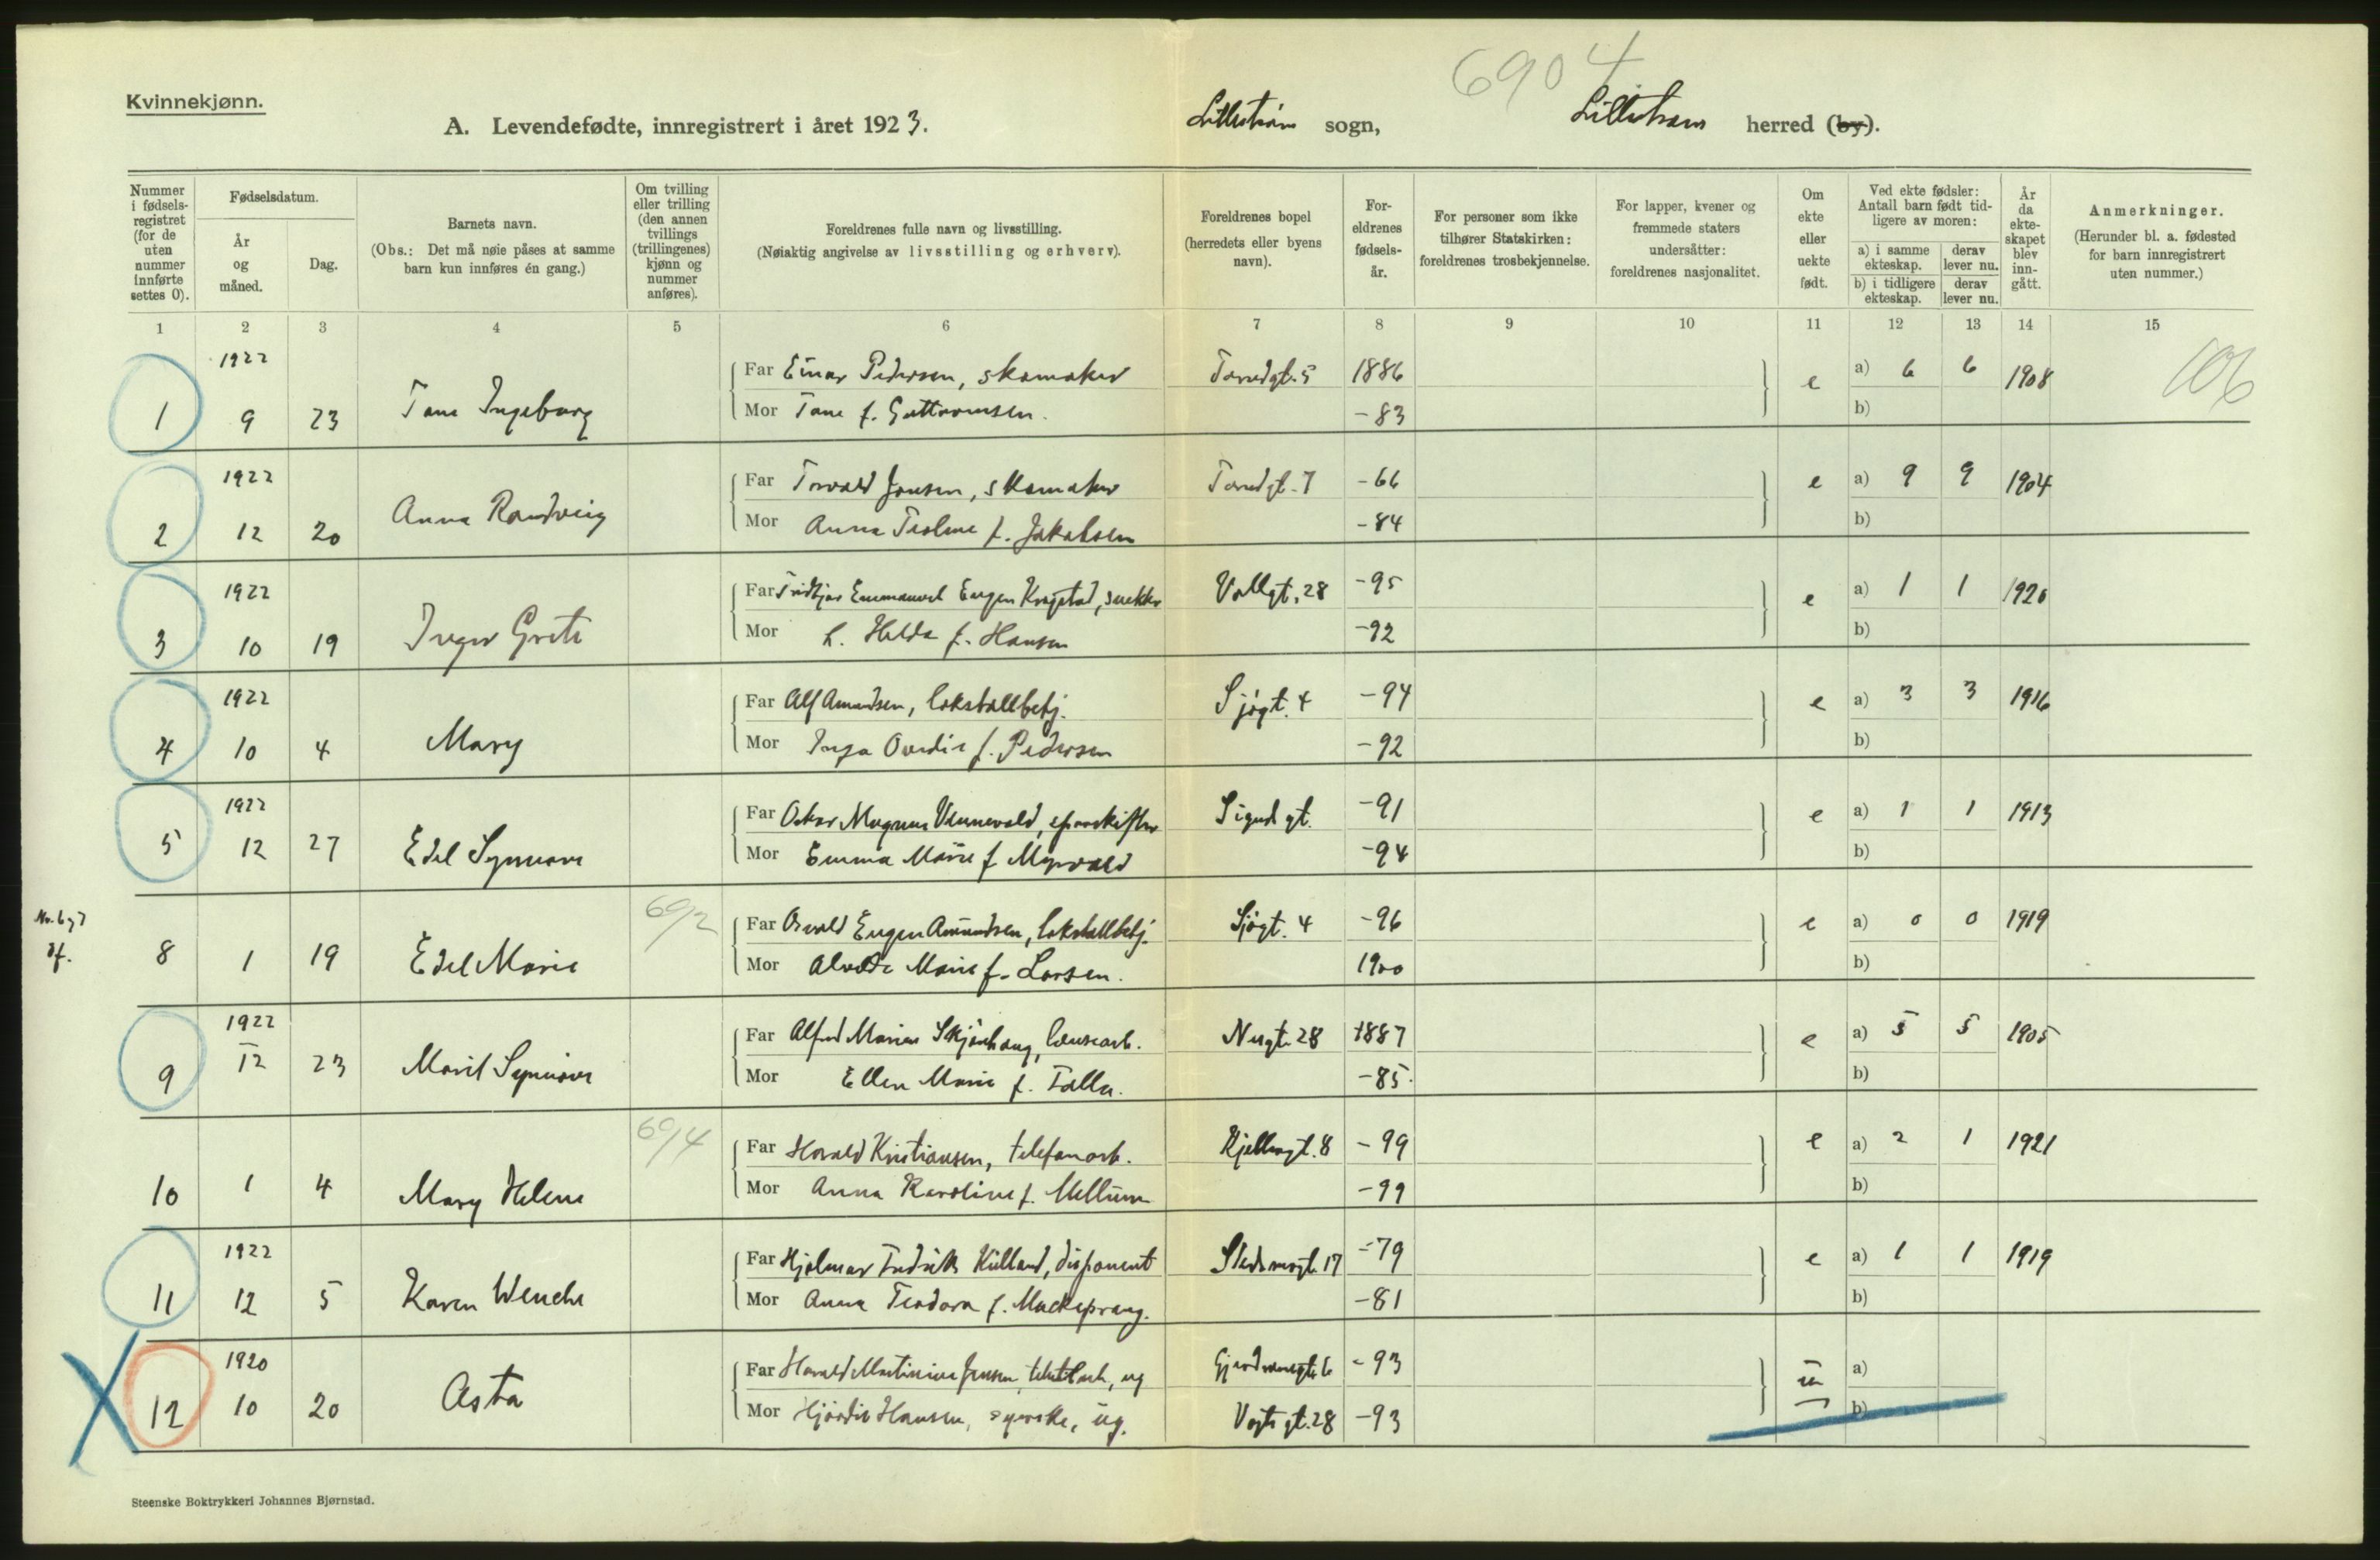 6904
Kvinnekjønn.
A. Levendefødte, innregistrert i året 1923. Lillestrøm sogn, Lillestrøm herred (by).
Nummer i fødselsregistret (for de uten nummer innførte settes 0).
Fødselsdatum.
År og måned.
Dag.
Barnets navn.
(Obs.: Det må nøie påses at samme barn kun innføres én gang.)
Om tvilling eller trilling (den annen tvillings (trillingenes) kjønn og nummer anføres).
Foreldrenes fulle navn og livsstilling.
(Nøiaktig angivelse av livsstilling og erhverv).
Foreldrenes bopel (herredets eller byens navn).
Foreldrenes fødselsår.
For personer som ikke tilhører Statskirken: foreldrenes trosbekjennelse.
For lapper, kvener og fremmede staters undersåtter: foreldrenes nasjonalitet.
Om ekte eller uekte født.
Ved ekte fødsler: Antall barn født tidligere av moren:
a) i samme ekteskap.
derav lever nu.
b) i tidligere ekteskap.
derav lever nu.
År da ekteskapet blev inngått.
Anmerkninger.
(Herunder bl. a. fødested for barn innregistrert uten nummer.)
1 2 3 4 5 6 7 8 9 10 11 12 13 14 15
1922
Far Einar Pedersen, skomaker 1886 e a) 6 6 1908 106
1 9 23 Tone Ingeborg
Mor Tone f. Guttormsen. -83 b)
1922
Far Torvald Jonsen, skomaker -66 e a) 9 9 1904
2 12 20 Anna Randveig
Mor Anna Teoline f. Jakobsen -84 b)
1922
Far Fridtjov Emmanuel Eugen Kragstad, snekker Vollgt. 28 -95 e a) 1 1 1920
3 10 19 Inger Grete
Mor h. Hilda f. Hansen -92 b)
1922
Far Alf Amundsen, lokstallbetj. Sjøgt. 4 -94 e a) 3 3 1916
4 10 4 Mary
Mor Inga Ovedie f. Pedersen -92 b)
1922
Far Oskar Magnus Vennevold, sporskifter Sigurd gt. -91 e a) 1 1 1913
5 12 27 Edel Synnøve
Mor Emma Marie f. Myrvold -94 b)
Nr. 6 og 7
df.
69/2
Far Osvald Eugen Amundsen, lokstallbetj. Sjøgt. 4 -96 e a) 0 0 1919
8 1 19 Edel Marie
Mor Alvilde Marie f. Larsen. 1900 b)
1922
Far Alfred Marius Skjønhaug, lensearb. Nergt. 28 1887 e a) 5 5 1905
9 12 23 Marit Synnøve
Mor Ellen Marie f. Falla. -85. b)
69/4
Far Harald Kristiansen, telefonarb. Kjellergt. 8 -99 e a) 2 1 1921
10 1 4 Mary Helene
Mor Anna Karoline f. Mellum -99 b)
1922
Far Hjalmar Fredrik Kielland, disponent Skedsmogt. 17 -79 e a) 1 1 1919
11 12 5 Karen Wenche
Mor Anna Teodora f. Mackeprang. -81 b)
1920
Far Harald Martinius Jensen, ug 6 -93 u a)
X 12 10 20 Asta
Mor Hjørdis Hansen, syerske, ug. Vogts gt. 28 -93 b)
Steenske Boktrykkeri Johannes Bjørnstad.